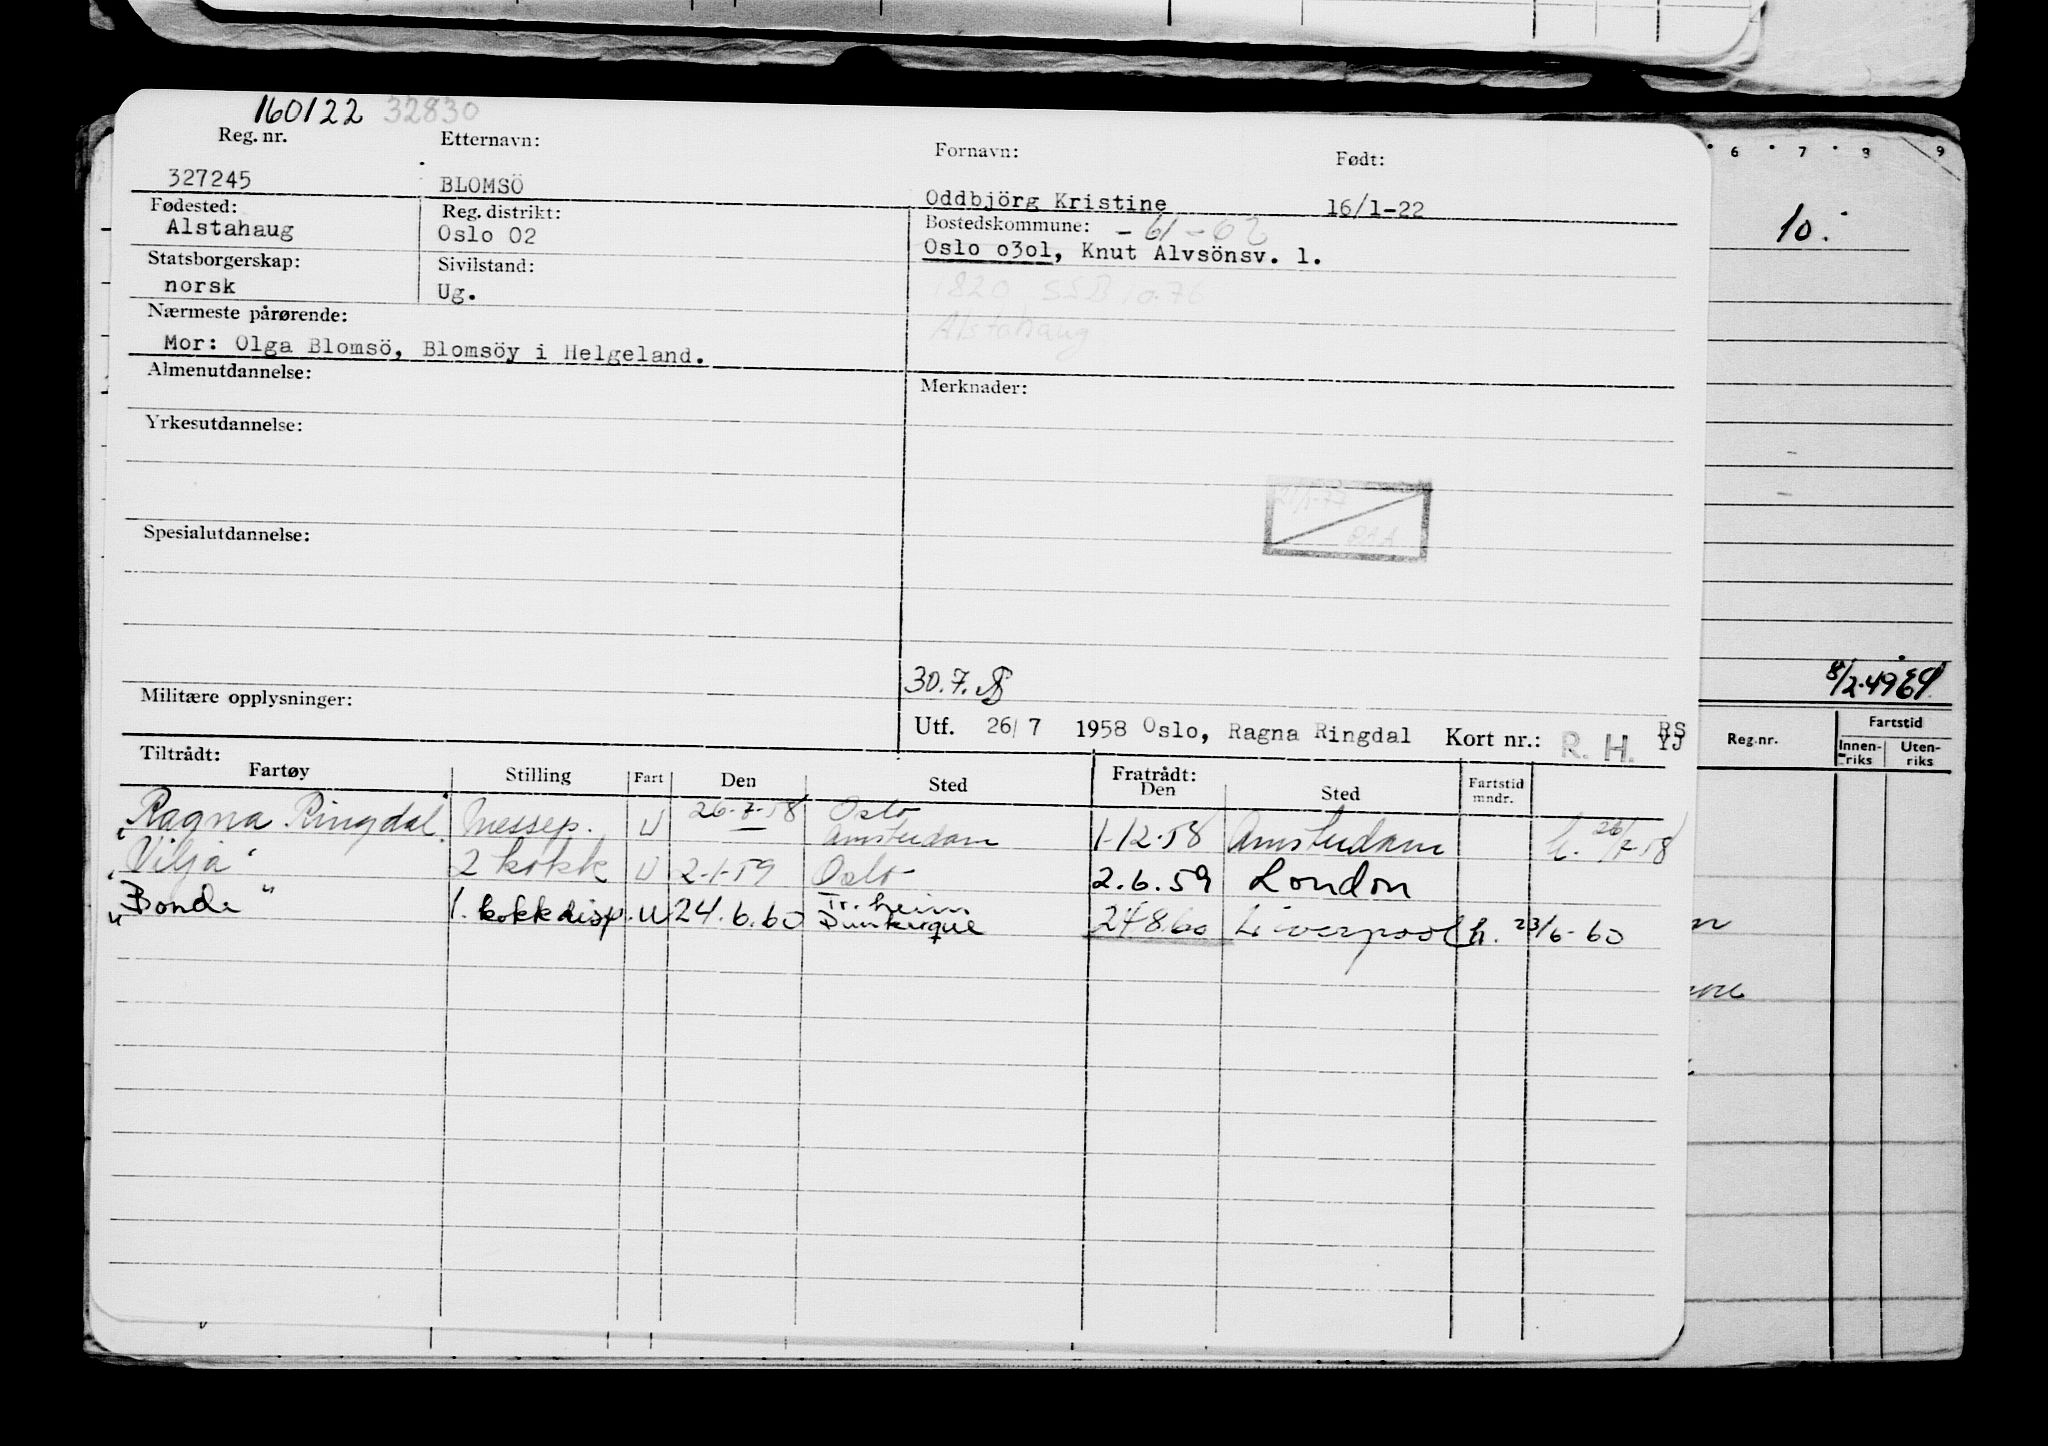 160122 32830
Reg. nr. Etternavn: Fornavn: Født:
327245 BLOMSÖ Oddbjörg Kristine 16/1-22
Fødested: Reg. distrikt: Bostedskommune: - 61 - 62
Alstahaug Oslo 02 Oslo o3o1, Knut Alvsönsv. 1.
Statsborgerskap: Sivilstand:
norsk Ug. 1820 SSB 10.76
Nærmeste pårørende: Alstahaug
Mor: Olga Blomsö, Blomsöy i Helgeland.
Almenutdannelse: Merknader:
Yrkesutdannelse:
Spesialutdannelse:
Militære opplysninger:
30.7.
Utf. 26/7 1958 Oslo, Ragna Ringdal Kort nr.: R. H. RS YJ
Tiltrådt: Fratrådt:
Fartøy Stilling Fart Den Sted Den Sted Fartstid mndr.
Ragna Ringdal Messep. U 26-7-58 Oslo Amsterdam 1-12-58 Amsterdam h. 26/7-58
"Vilja" 2 kokk U 2-1-59 Oslo 2.6.59 London
"Bonde" 1. kokk disp. U 24.6.60 Tr.heim Dunkerque 24.8.60 Liverpool h. 23/6-60
6 7 8 9
10.
8/2.49
Reg.nr. Fartstid
Innen-riks Uten-riks